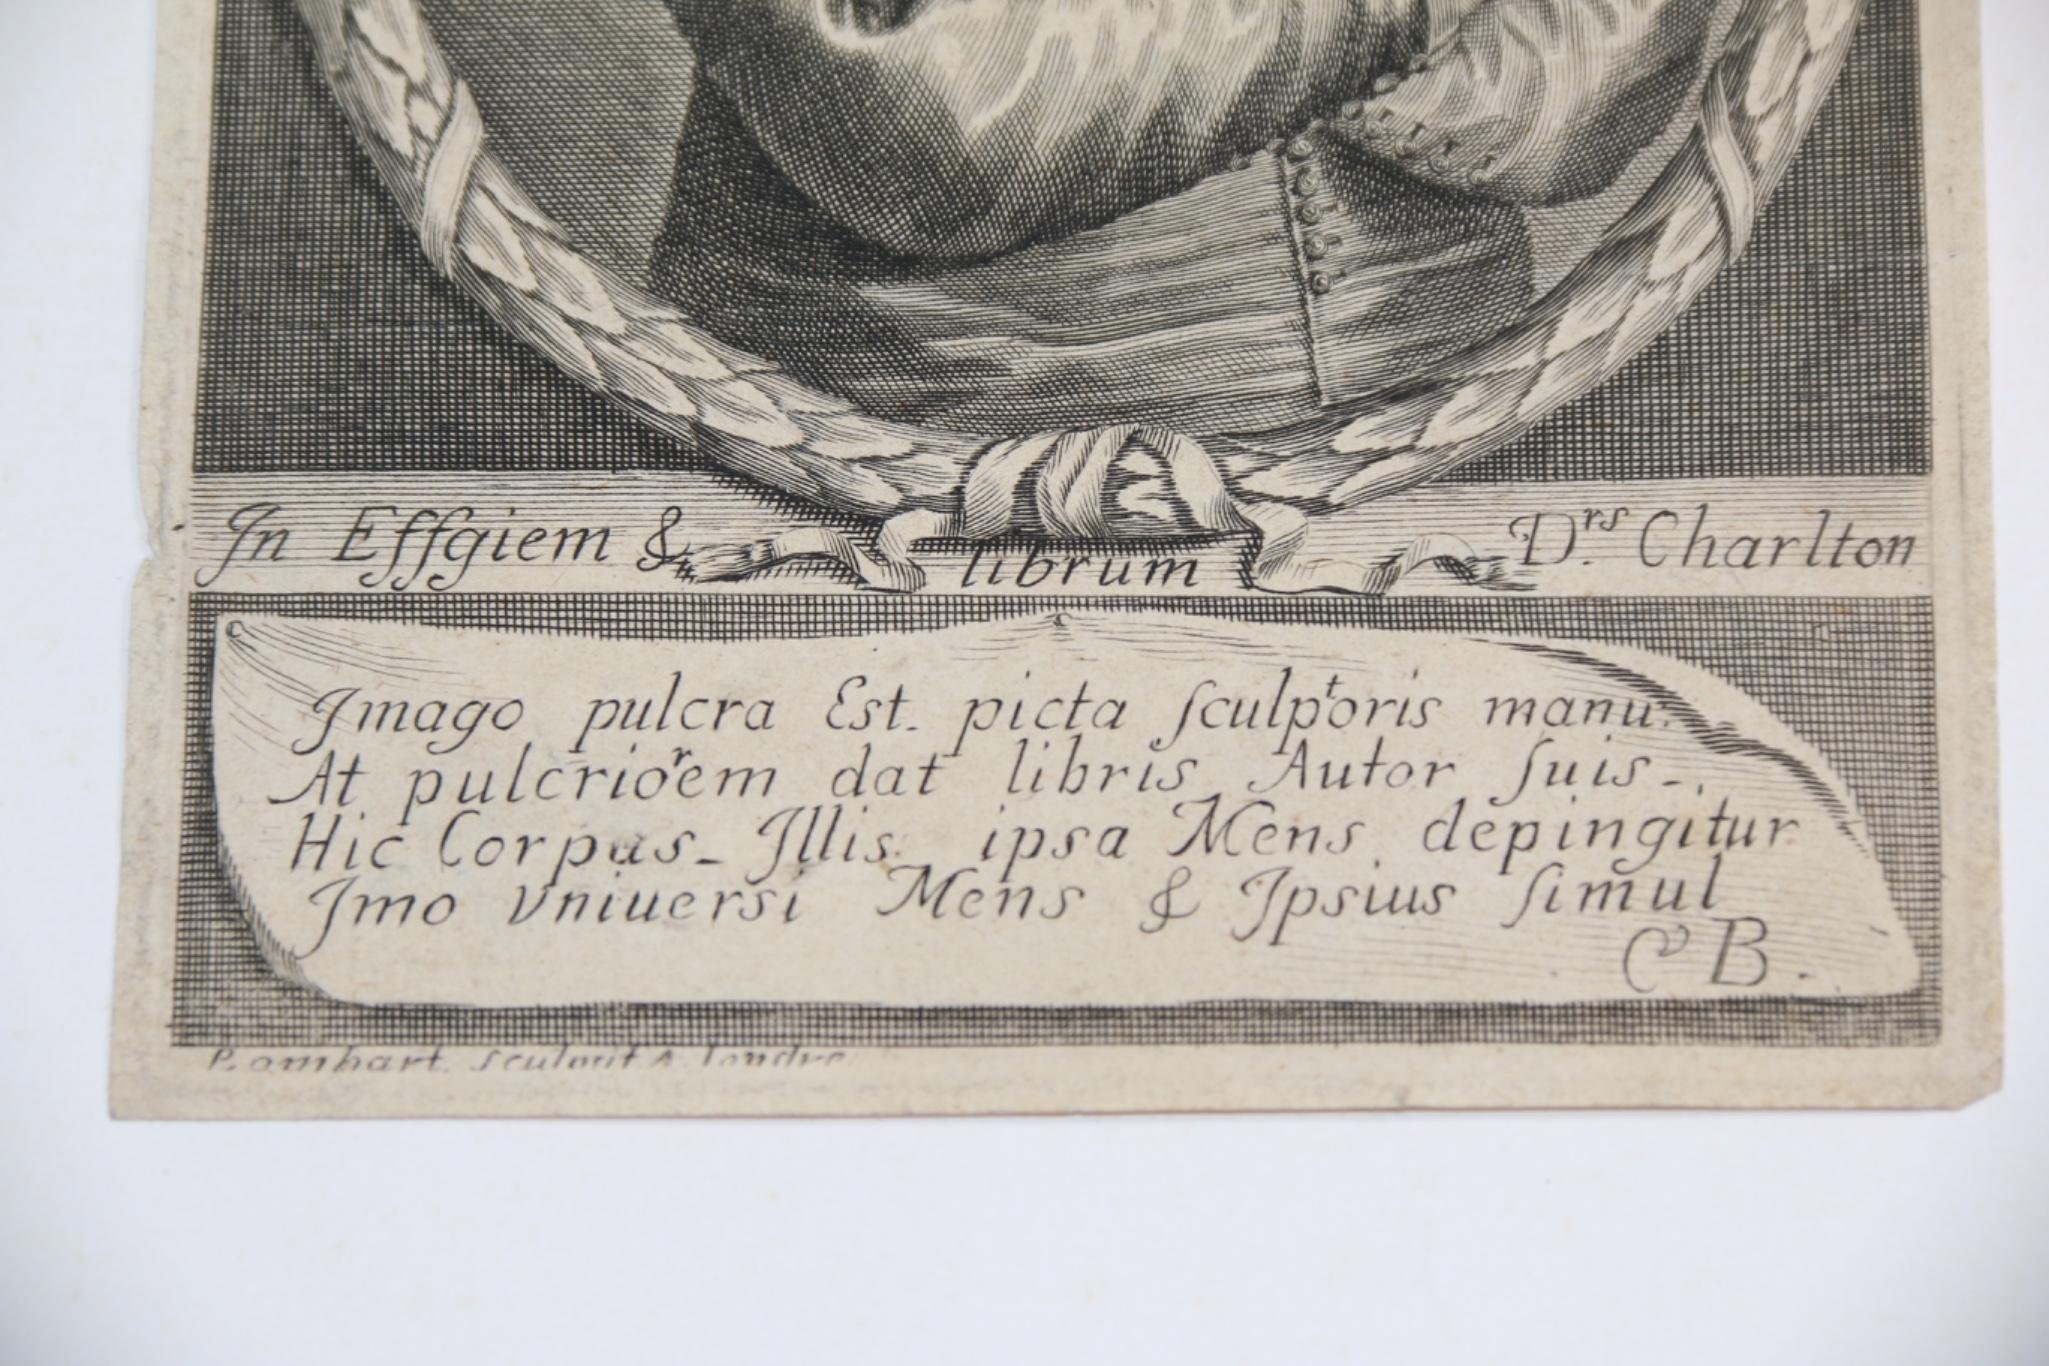 In Effgiem & librum Drs. Charlton
Imago pulcra Est. picta sculptoris manu:
At pulcriorem dat libris Autor suis-.
Hic Corpus- Illis. ipsa Mens. depingitur
Imo vniuersi Mens & Ipsius simul
CB.
P. Lombart. sculpsit A. Londre